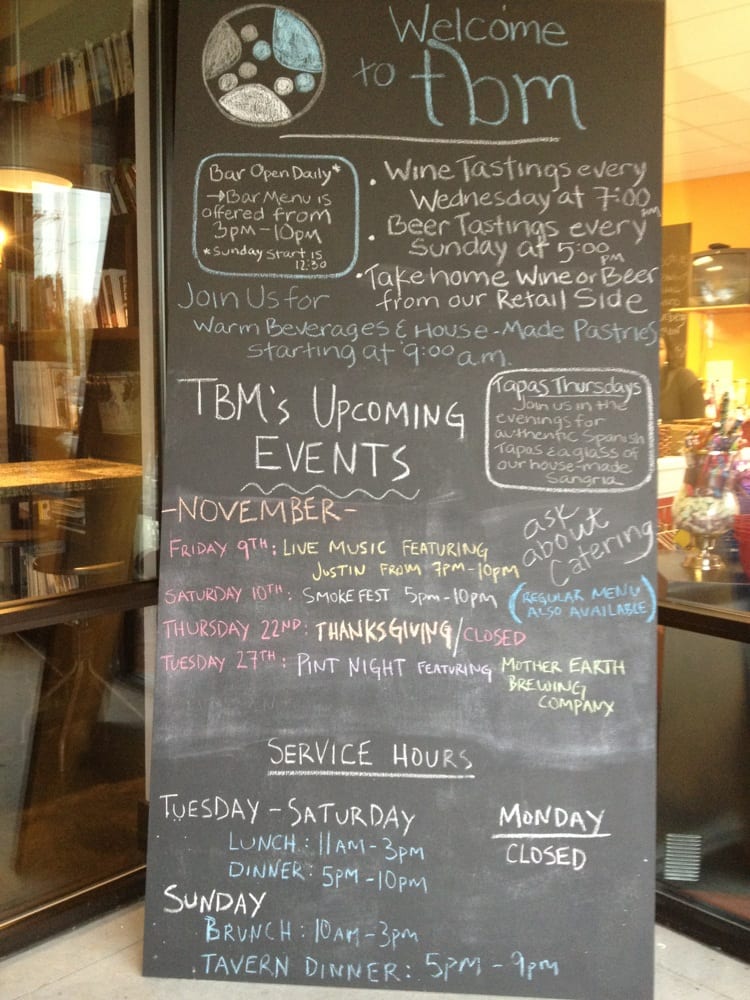 Welcome
to tbm
Bar Open Daily*
→Bar Menu is
offered from
3pm-10pm
*Sunday start is
12:30
• Wine Tastings every
Wednesday at 7:00 pm
• Beer Tastings every
Sunday at 5:00 pm
• Take home Wine or Beer
from our Retail Side
Join Us for
Warm Beverages & House-Made Pastries
starting at 9:00 a.m.
TBM's Upcoming
Events
Tapas Thursdays
Join us in the
evenings for
authentic Spanish
Tapas & a glass of
our house-made
Sangria
-November-
ask
about
Catering
Friday 9th: Live Music featuring
Justin from 7pm-10pm
Saturday 10th: Smoke Fest 5pm-10pm (Regular Menu
also available)
Thursday 22nd: Thanksgiving/Closed
Tuesday 27th: Pint Night featuring Mother Earth
Brewing
Company
Service Hours
Tuesday - Saturday
Lunch: 11am-3pm
Dinner: 5pm-10pm
Monday
Closed
Sunday
Brunch: 10am-3pm
Tavern Dinner: 5pm-9pm